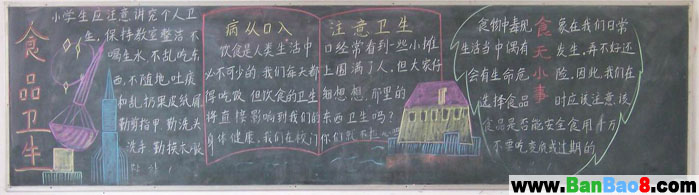 食品卫生
小学生应注意讲究个人卫
生,保持教室整洁 不
喝生水,不乱吃东
西,不随地吐痰
和乱扔果皮纸屑
勤剪指甲 勤洗头
洗手 勤换衣服
病从口入
饮食是人类生活中
必不可少的,我们每天都
得吃饭 但饮食的卫生
将直接影响到我们的
身体健康,我们在校门
注意卫生
口经常看到一些小摊
上围满了人,但大家仔
细想想,那里的
东西卫生吗?
食无小事
食物中毒现象在我们日常
生活当中偶有发生,弄不好还
会有生命危险,因此,我们在
选择食品时应该注意该
食品是否能安全食用 千万
不要吃变质或过期的
www.BanBao8.com